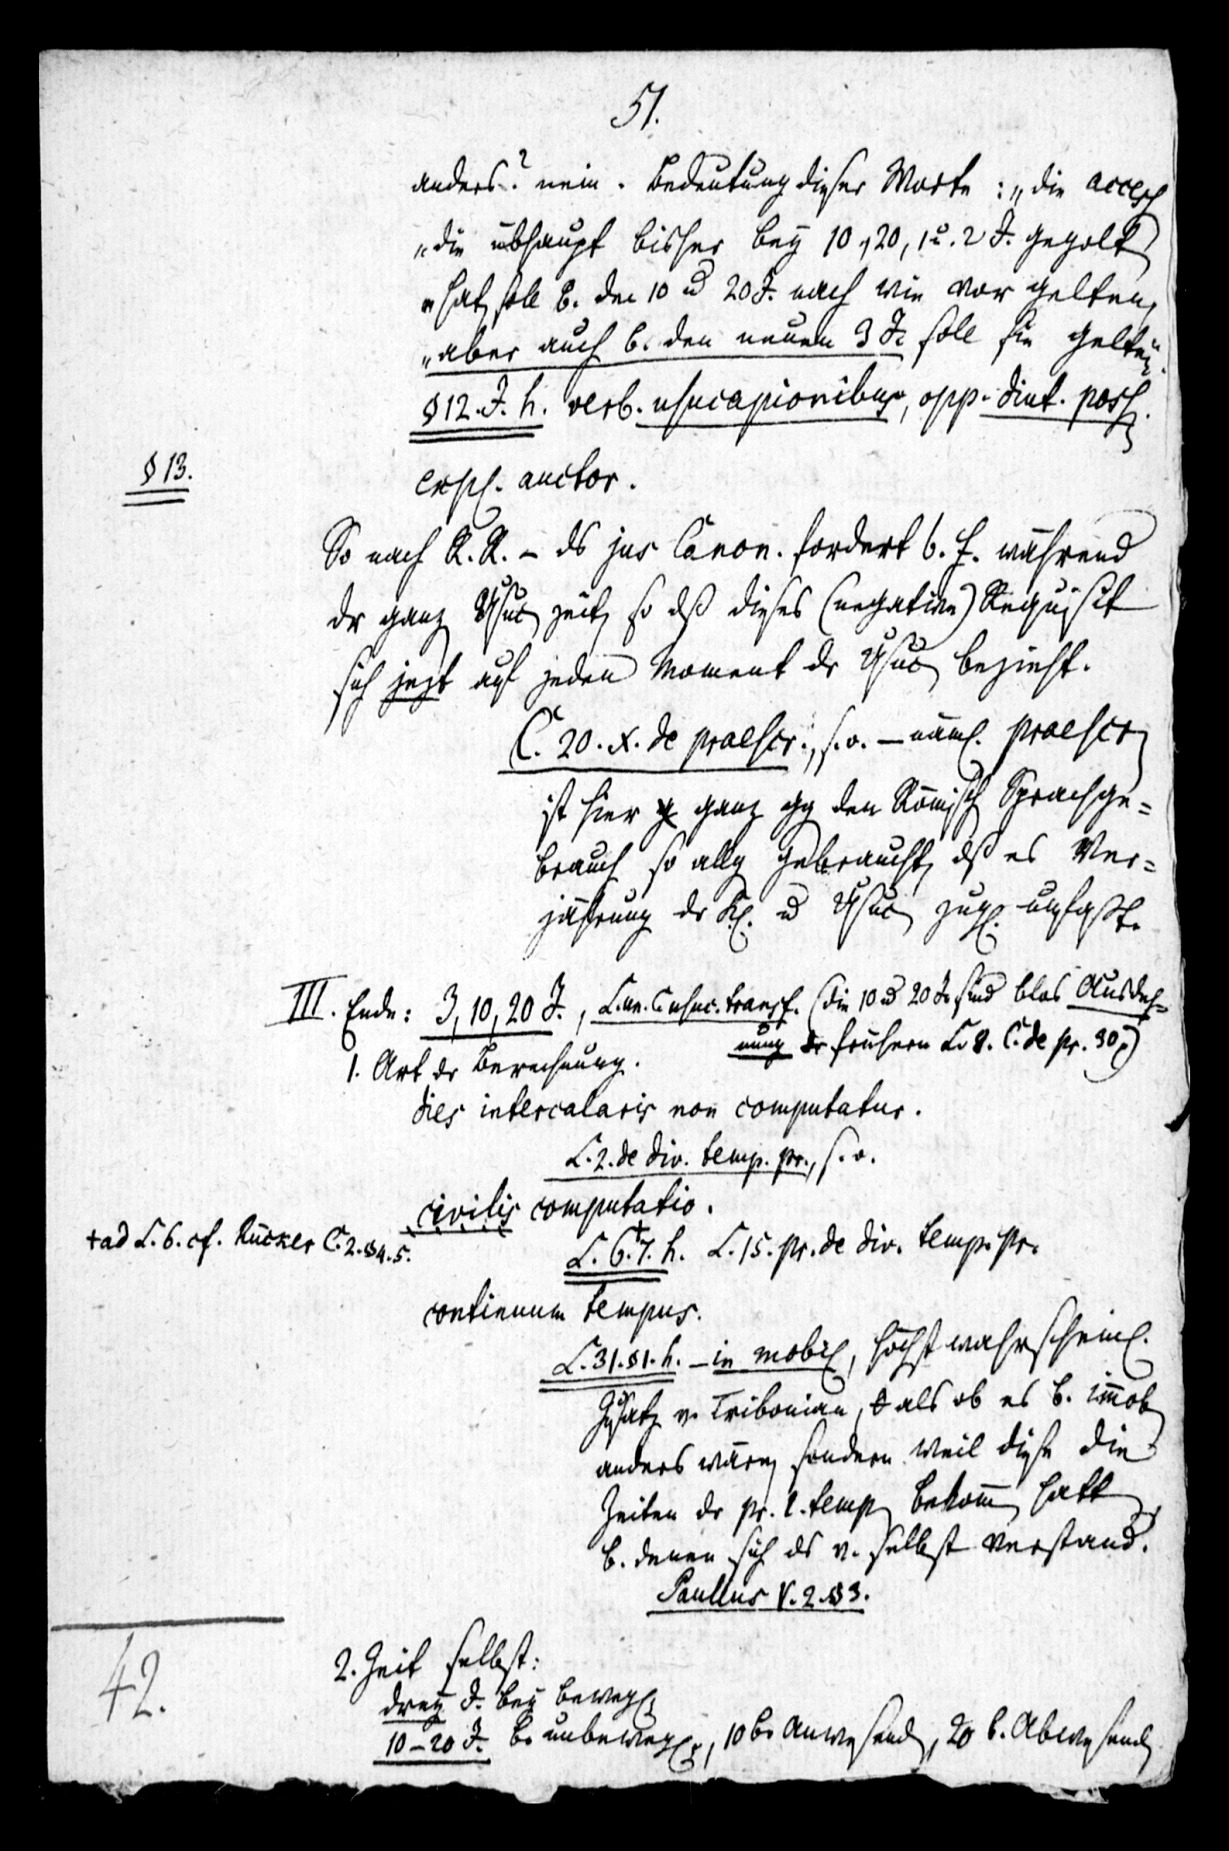 51.
anders? nein. Bedeutung dieser Worte: „die access
„die übhaupt bisher bey 10, 20, 1 u. 2 J. gegolt
„hat, soll b. den 10 u 20 J. nach wie vor gelten,
„aber auch b. den neuen 3 J. soll sie gelten“.
§ 12. J. h. verb. usucapionibus, opp. diut. poss.
§ 13.
expl. auctor.
So nach R. R. – ds jus Canon. fordert b. f. während
dr ganz Usuc zeit, so dß dieses (negative) Requisit
sich jezt auf jeden Moment dr Usuc bezieht.
C. 20. X. de praescr., s. o. – näml. praescr
ist hier ganz gg den Römisch Sprachge=
brauch so allg gebraucht, dß es Ver=
jährung dr Kl. u Usuc zugl. umfaßt.
III. Ende: 3, 10, 20 J., L. un. C. usuc. transf. (die 10 u 20 J. sind blos Ausdeh=
nung dr frühern L. 8. C. de pr. 30.)
1. Art dr Berechnung.
dies intercalaris non computatur.
L. 2. de div. temp. pr., s. o.
civilis computatio.
+ad L. 6. cf. Rücker C. 2. §4. 5.
L. 6.+7. h. L. 15. pr. de div. temp. pr.
continuum tempus.
L. 31. §1. h. – in mobil, höchst wahrscheinl.
Zusatz v. Tribonian, als ob es b. immob
anders wäre, sondern weil diese die
Zeiten dr pr. l. temp bekomm hatt,
b. denen sich ds v. selbst verstand.
Paullus V. 2. §3.
42.
2. Zeit selbst:
drey J. bey bewegl.
10–20 J. b. unbewegl., 10 b. Anwesend, 20 b. Abwesend